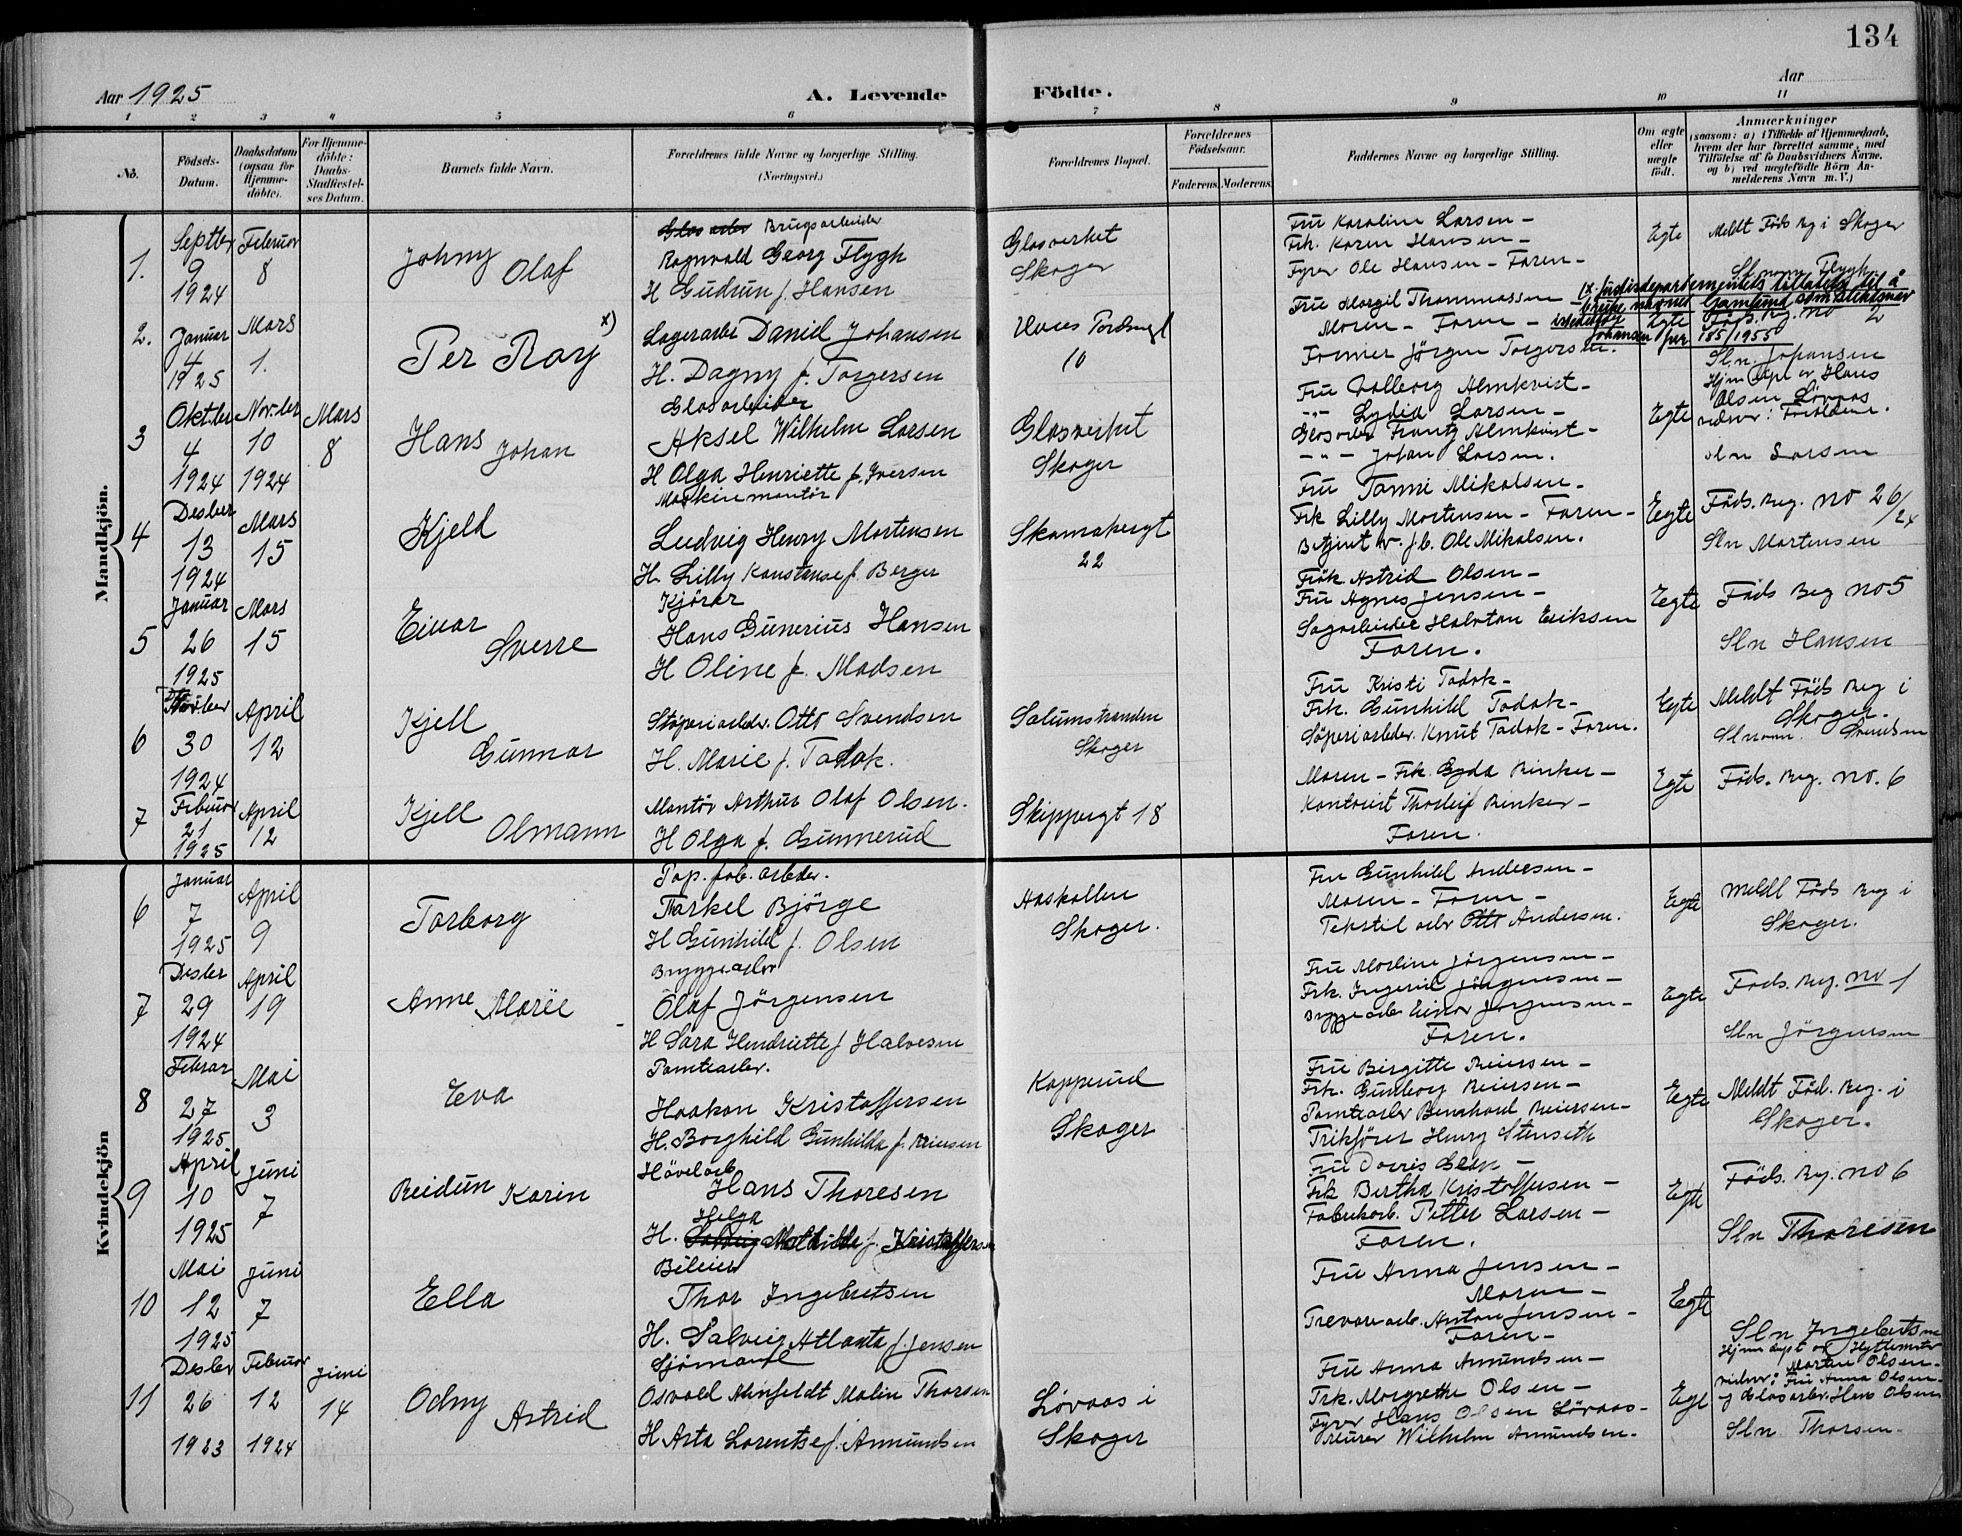 134
Aar 1925
A. Levende Födte.
Aar
1 2 3 4 5 6 7 8 9 10 11
No.
Födsels-Datum.
Daabsdatum (ogsaa for Hjemme-döbte).
For Hjemme-döbte: Daabs-Stadfæstel-ses Datum.
Barnets fulde Navn.
Forældrenes fulde Navne og borgerlige Stilling.
(Næringsvei.)
Forældrenes Bopæl.
Forældrenes Födselsaar.
Faderens. Moderens.
Faddernes Navne og borgerlige Stilling.
Om ægte eller uægte födt.
Anmærkninger
(saasom: a) i Tilfælde af Hjemmedaab, hvem der har forrettet samme, med Tilföielse af to Daabsvidners Navne, og b) ved uægtefödte Börn An-melderens Navn m. V.)
Mandkjön.
1.
Septbr 9 1924
Februar 8
Johny Olaf
Glasarbr Brugsarbeider
Ragnvald Georg Flygh
H Gudrun f. Hansen
Glasverket
Skoger
Fru Karoline Larsen -
Frk. Karen Hansen -
Fyrer Ole Hansen - Faren -
Egte
Meldt Föds Reg i Skoger
Sl.navn Flygh.
2.
Januar 4 1925
Mars 1.
Per Roy x)
Lagerarbr Daniel Johansen
H. Dagny f. Torgersen
10
Fru Margit Thommassen
Moren - Faren -
Former Jörgen Torgersen.
Egte
Föds. Reg. no 2
185/1955
Sln. Johansen
3
Oktber 4 1924
Nov.ber 10 1924
Mars 8
Hans Johan
Glasarbeider
Aksel Wilhelm Larsen
H Olga Henriette f. Iversen
Glasverket
Skoger
Fru Valborg Almkvist -
-"- Lydia Larsen -
Glasarbr Frantz Almkvist -
-"- Johan Larsen.
Egte
Hjm döpt av Hans
Olsen Lövaas
vidner: Forældrene.
sln Larsen
4
Desber 13 1924
Mars 15
Kjeld
Maskinmontör
Ludvig Henry Mortensen
H. Lilly Konstanse f. Berger
22
Fru Fanni Mikalsen -
Frk Lilly Mortensen - Faren -
Betjent v. j.b. Ole Mikalsen.
Egte
Föds. Reg. no 26/24
Sln Martensen
5
Januar 26 1925
Mars 15
Einar Sverre
Kjörer
Hans Gunerius Hansen
H Oline f. Madsen
Frök Astrid Olsen -
Fru Agnes Jensen -
Sagarbeider Halvtan Eriksen
Faren.
Egte
Föds Reg no 5
Sln Hansen
6
30 1924
April 12
Kjell Gunnar
Stöperiarbdr. Otto Svendsen
H. Marie f. Tadak.
Solumstranden
Skoger
Fru Kristi Tadak -
Frk. Gunhild Tadak -
Söperiarbdr. Knut Tadak - Faren.
Egte
Meldt Föds Reg i
Skoger.
Slnavn. Svendsen
7
Februar 21 1925
April 12
Kjell Olmann
Montör Arthur Olaf Olsen.
H Olga f. Gunnerud
Skippergt 18
Moren - Frk. Gyda Rinker -
Kontorist Thorleif Rinker -
Faren.
Egte
Föds. Reg. no. 6
Kvindekjön
6
Januar 7 1925
April 9
Torborg
Pap. fab. arbdr.
Tarkel Bjørge
H Gunhild f. Olsen
Aaskollen
Skoger.
Fru Gunhild Andersen -
Moren - Faren -
Tekstil arbr Otto Andersen.
Egte
Meldt Föds Reg i
Skoger.
7
Desber 29 1924
April 19
Anne Marie
Bryggearbr
Olaf Jörgensen
H Sara Hendriette f. Halvesen
Fru Josefine Jörgensen -
Frk. Ingerid Jörgensen -
Bryggearbr Einar Jörgensen -
Faren.
Egte
Föds. Reg. no 1
Sln Jörgensen
8
Februar 27 1925
Mai 3
Eva
Tomtearbr.
Haakon Kristoffersen
H. Borghild Gunhilda f. Reiersen
Kopperud
Skoger
Fru Birgitte Reiersen -
Frk. Gunborg Reiersen -
Tomtearbr Bernhard Reiersen -
Trikförer Henry Stenseth
Egte
Meldt Föd. Reg. i
Skoger.
9
April 10 1925
Juni 7
Reidun Karin
Hövelarb
Hans Thoresen
Helga
H. Solveig Mathilde f. Kristoffersen
Fru Dorris Gran -
Frk Bertha Kristoffersen -
Fabrikarb. Petter Larsen -
Faren.
Egte
Föds. Reg. no 6
Sln Thoresen
10
Mai 12 1925
Juni 7
Ella
Bileier
Thor Ingebretsen
H. Salveig Atlanta f. Jensen
Fru Anna Jensen -
Moren -
Trevarearb. Anton Jensen -
Faren -
Egte
Sln Ingebretsen
11
Desber 26 1923
Februar 12 1924
Juni 14
Odny Astrid
Sjömand
Osvald Ahnfeldt Malin Thorsen
H Asta Lorentse f. Amundsen
Lövaas i
Skoger
Fru Anna Amundsen -
Frk. Margrethe Olsen -
Fyrer Hans Olsen Lövaas -
Murer Wilhelm Amundsen.
Egte
Hjmdöpt av Hyttemstr
Martin Olsen -
vidner: Fru Anna Olsen -
og Glasarbr. Hans Olsen
Sln Thorsen